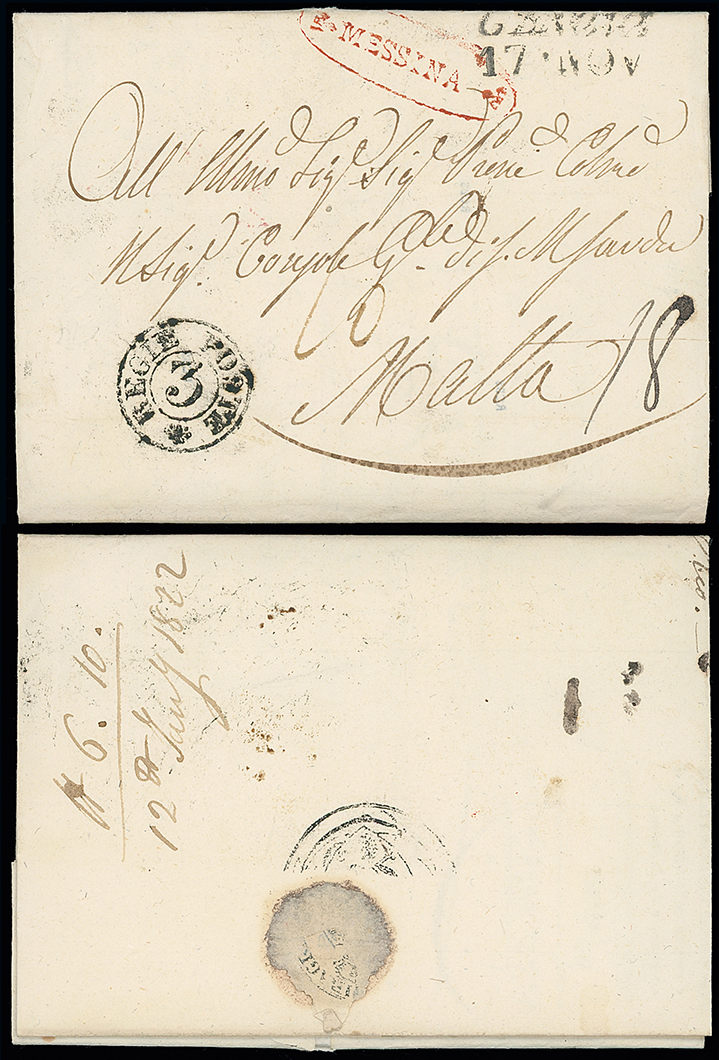 MESSINA
GENOVA
17 NOV
All' Illmo Sigr Sigr Prone Colmo
Il Sigr Console Gle di S. M. Sarda
Malta
18
REGIE POSTE
3
6. 10.
12th Jany 1822